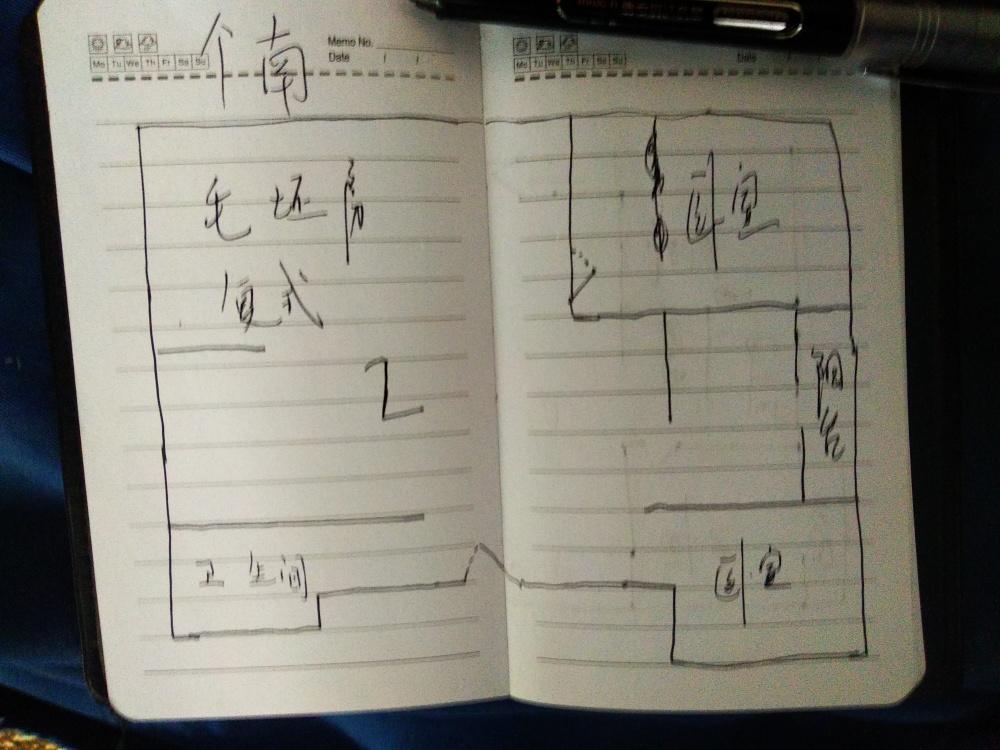 个南
Memo No.
Date / /
Mo Tu We Th Fr Sa Su
Mo Tu We Th Fr Sa Su
Date
毛坯房
复式
卧室
阳台
卫生间
卧室